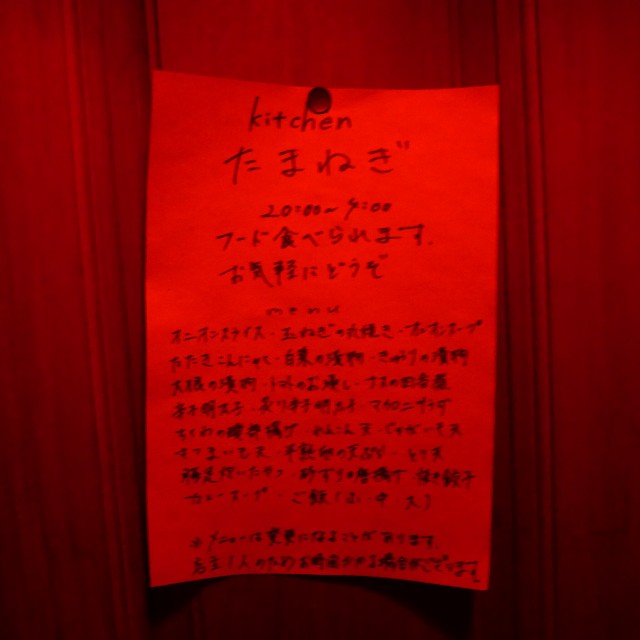 kitchen
たまねぎ
20:00〜4:00
フード食べられます。
お気軽にどうぞ
menu
オニオンスライス・玉ねぎの丸焼き・オニオンスープ
たたきこんにゃく・白菜の漬物・きゅうりの漬物
大根の漬物・トマトのお浸し・ナスの田舎煮
辛子明太子・炙り辛子明太子・マカロニサラダ
ちくわの磯辺揚げ れんこん天・じゃがいも天
さつまいも天・半熟卵の天ぷら・とり天
豚足 砂ずりの唐揚げ 焼き餃子
カレースープ・ご飯(小・中・大)
※メニューは変更になることがあります。
店主1人のためお時間かかる場合がございます。